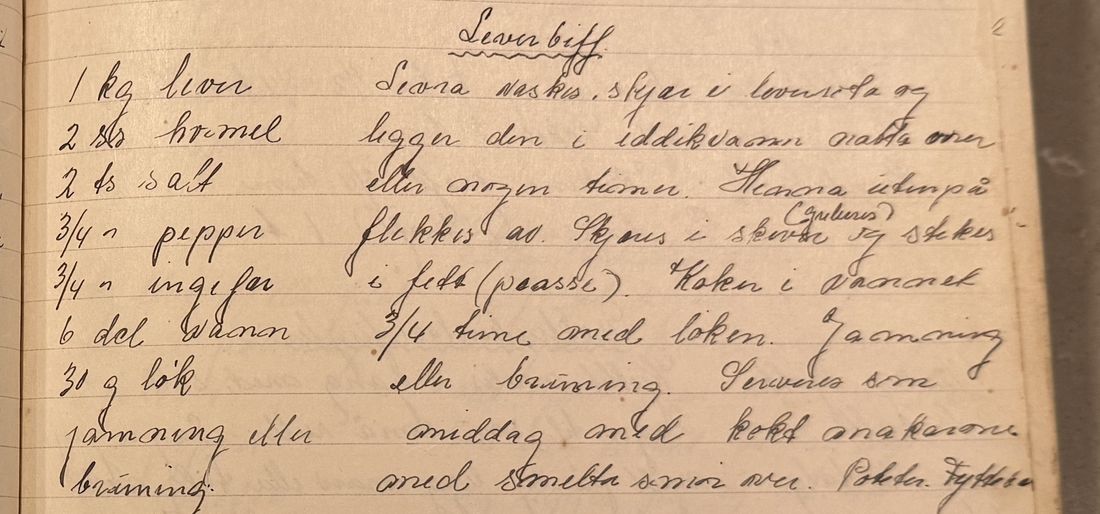 Leverbiff
1 kg lever
2 ss hvemel
2 ts salt
3/4 " pepper
3/4 " ingefær
6 del vann
30 g løk
jamning eller
bruning.
Levra vaskes, skjær i og
legger den i eddikvann natta over
eller nogen timer. Hinna utenpå
flekkes av. Skjæres i skiver og stekes
i fett (). Koker i vannet
3/4 time med løken. Jamning
eller bruning. Serveres som
middag med kokt makaroni
med smelta smør over. Poteter.